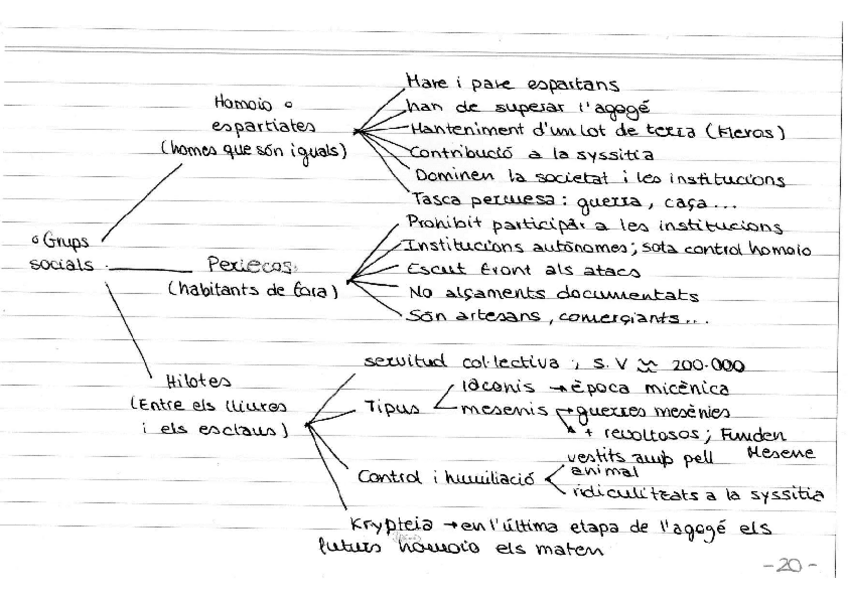 Homoio o
espartiates
(homes que són iguals)
Mare i pare espartans
han de superar l'agogé
Manteniment d'un lot de terra (Kleros)
Contribució a la syssitia
Dominen la societat i les institucions
Tasca permesa: guerra, caça...
o Grups
socials
Periecos
(habitants de fora)
Prohibit participar a les institucions
Institucions autònomes; sota control homoio
Escut front als atacs
No alçaments documentats
Són artesans, comerciants...
Hilotes
(Entre els lliures
i els esclaus)
servitud col·lectiva; s. V ≈ 200.000
Tipus
laconis → època micènica
mesenis → guerres mesènies
+ revoltosos; Funden
Mesene
Control i humiliació
vestits amb pell
animal
ridiculitzats a la syssitia
Krypteia → en l'última etapa de l'agogé els
futurs homoio els maten
-20-